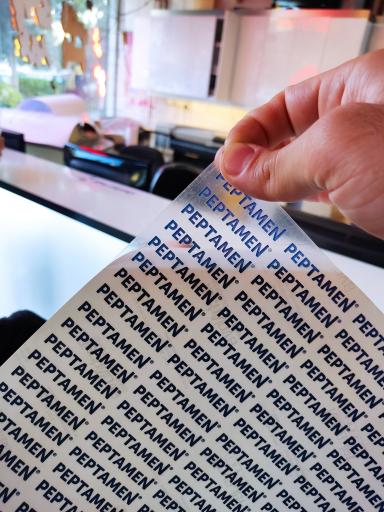 PEPTAMEN®
PEPTAMEN®
PEPTAMEN®
PEPTAMEN®
PEPTAMEN®
PEPTAMEN®
PEPTAMEN®
PEPTAMEN®
PEPTAMEN®
PEPTAMEN®
PEPTAMEN®
PEPTAMEN®
PEPTAMEN®
PEPTAMEN®
PEPTAMEN®
PEPTAMEN®
PEPTAMEN®
PEPTAMEN®
PEPTAMEN®
PEPTAMEN®
PEPTAMEN®
PEPTAMEN®
PEPTAMEN®
PEPTAMEN®
PEPTAMEN®
PEPTAMEN®
PEPTAMEN®
PEPTAMEN®
PEPTAMEN®
PEPTAMEN®
PEPTAMEN®
PEPTAMEN®
PEPTAMEN®
PEPTAMEN®
PEPTAMEN®
PEPTAMEN®
PEPTAMEN®
PEPTAMEN®
PEPTAMEN®
PEPTAMEN®